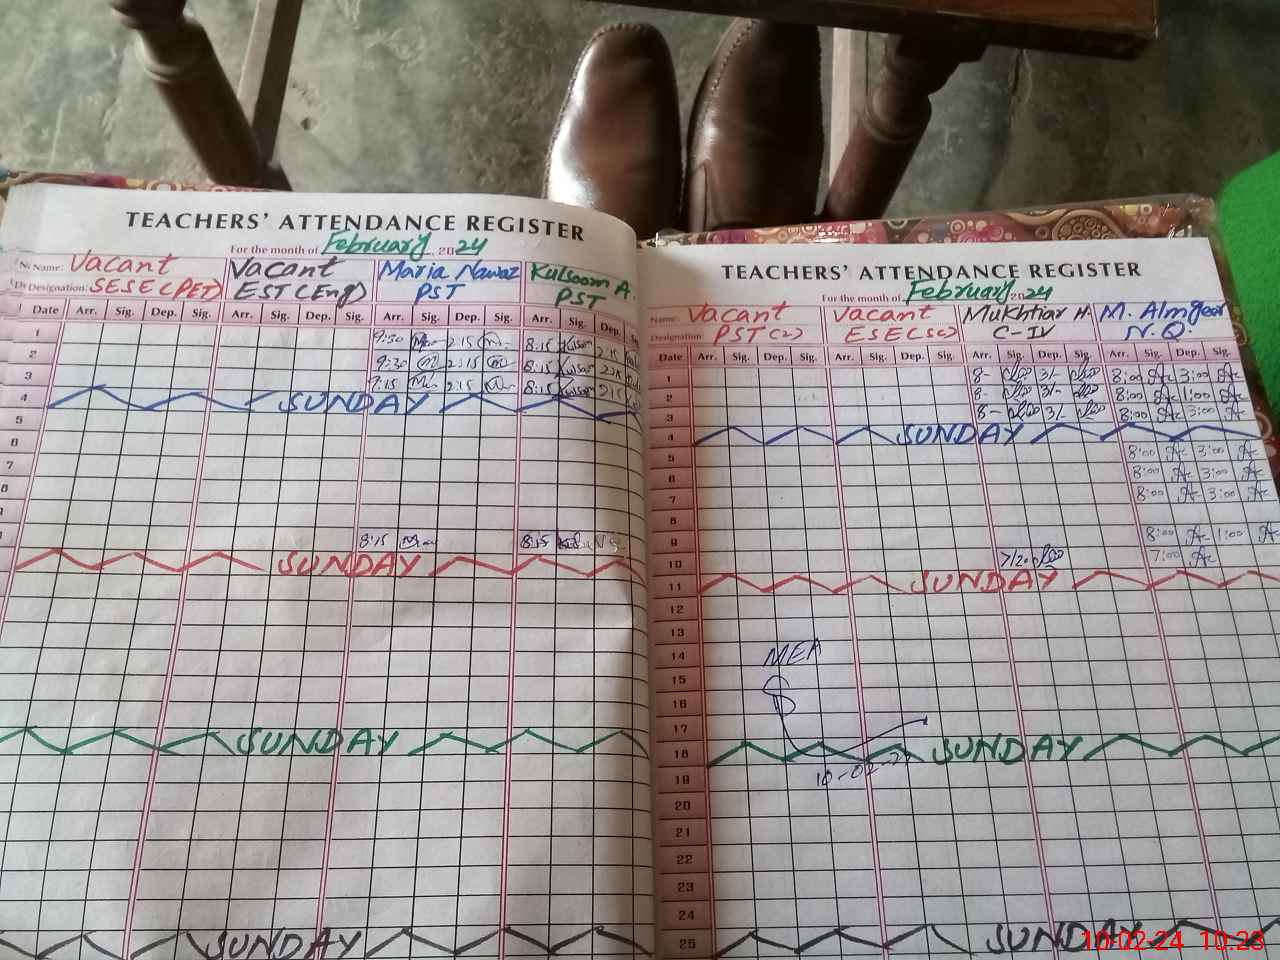 TEACHERS' ATTENDANCE REGISTER
For the month of February 2024
Name: Vacant Vacant Maria Nawaz Kulsoom A.
Designation: SESE(PET) EST(Eng) PST PST
Date Arr. Sig. Dep. Sig. Arr. Sig. Dep. Sig. Arr. Sig. Dep. Sig. Arr. Sig. Dep. Sig.
1 9:30 2:15 8:15 2:15
2 9:30 2:15 8:15
3 9:15 2:15 8:15 2:15
4 SUNDAY
5
6
7
8
8:15 8:15
SUNDAY
SUNDAY
SUNDAY
TEACHERS' ATTENDANCE REGISTER
For the month of February 2024
Name: Vacant Vacant Mukhtiar H. M. Almgeer
Designation PST(2) ESE(Sc) C-IV N.Q.
Date Arr. Sig. Dep. Sig. Arr. Sig. Dep. Sig. Arr. Sig. Dep. Sig. Arr. Sig. Dep. Sig.
1 8- 3/- 8:00 3:00
2 8- 3/- 8:00 1:00
3 8- 3/- 8:00 3:00
4 SUNDAY
5 8:00 3:00
6 8:00 3:00
7 8:00 3:00
8
9 8:00 1:00
10 7/20 7:00
11 SUNDAY
12
13
14 MEA
15
16
17
18 SUNDAY
19 10-02-24
20
21
22
23
24
25 SUNDAY
10-02-24 10:23